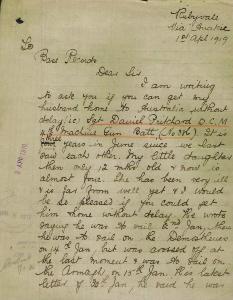 Rubyvale
Via Anakie
1st Apl 1919
To
Base Records
Dear Sir
I am writing
to ask you if you can get my
husband home to Australia without
delay, ie) Sgt Daniel Pritchard D.C.M
4th Machine Gun Batt (No 316). It is
three years in June since we last
saw each other. My little daughter
then only 12 months old & now is
almost four. She has been very ill
& is far from well yet & I would
be so pleased if you could get
him home without delay. He wrote
saying he was to sail 2nd Jan, then
he was to sail on the Demosthenes
on 14th Jan, but was crossed off at
the last moment & was to sail on
the Armagh, on 18th Jan. His latest
letter of 30th Jan, he said he was